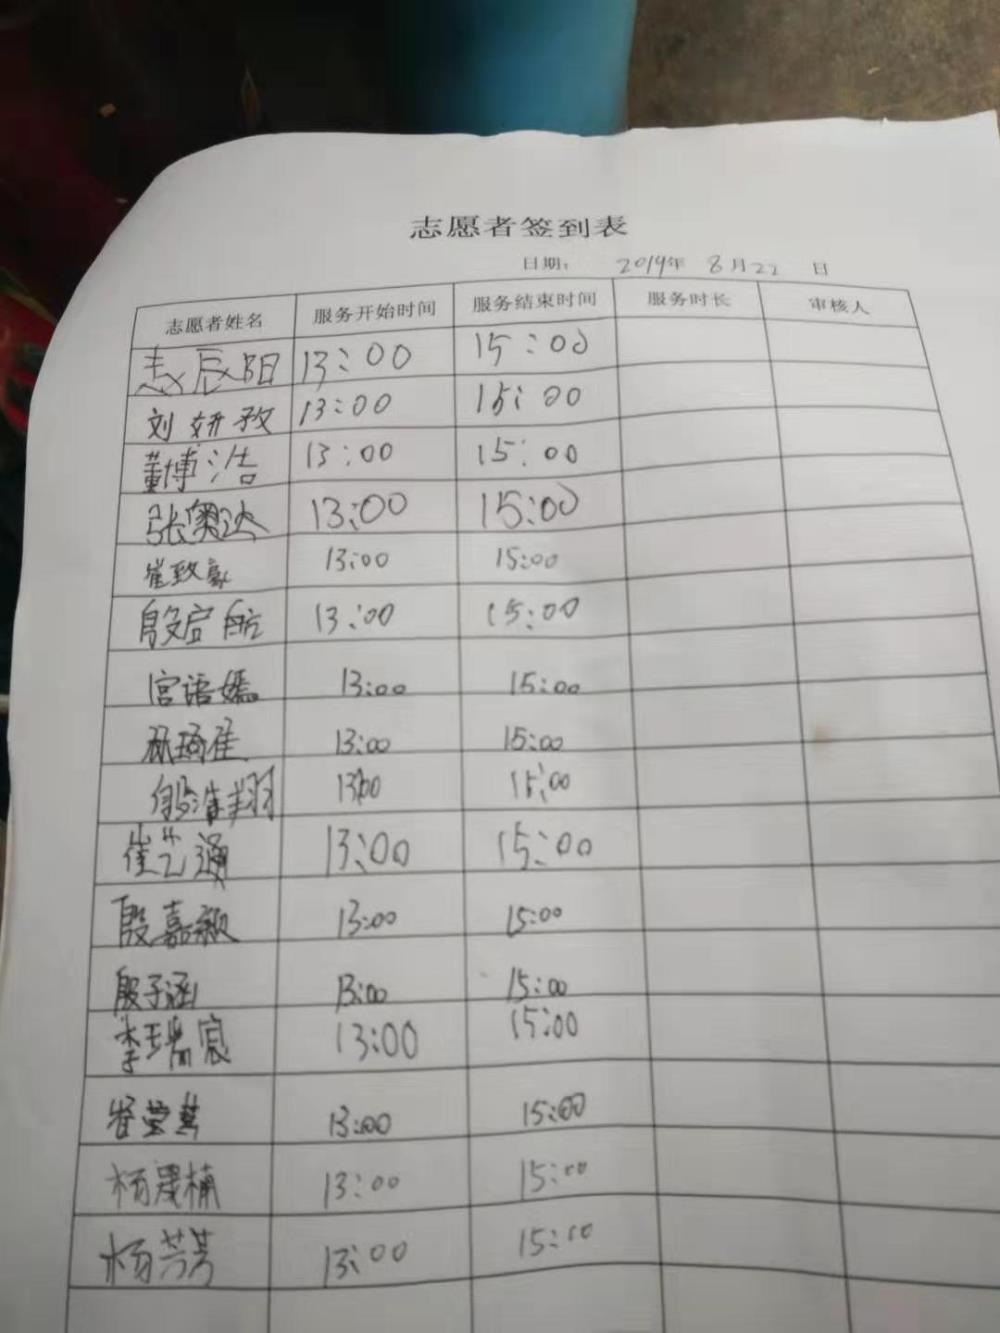 志愿者签到表
日期： 2019年 8月22 日
志愿者姓名 服务开始时间 服务结束时间 服务时长 审核人
赵辰阳 13:00 15:00
刘妍孜 13:00 15:00
董博浩 13:00 15:00
张奥达 13:00 15:00
崔致豪 13:00 15:00
殷启航 13:00 15:00
宫语嫣 13:00 15:00
孙琦佳 13:00 15:00
殷浩翔 13:00 15:00
崔艺涵 13:00 15:00
殷嘉颖 13:00 15:00
殷子涵 13:00 15:00
李瑞宸 13:00 15:00
13:00 15:00
杨晟楠 13:00 15:00
杨芳芳 13:00 15:00